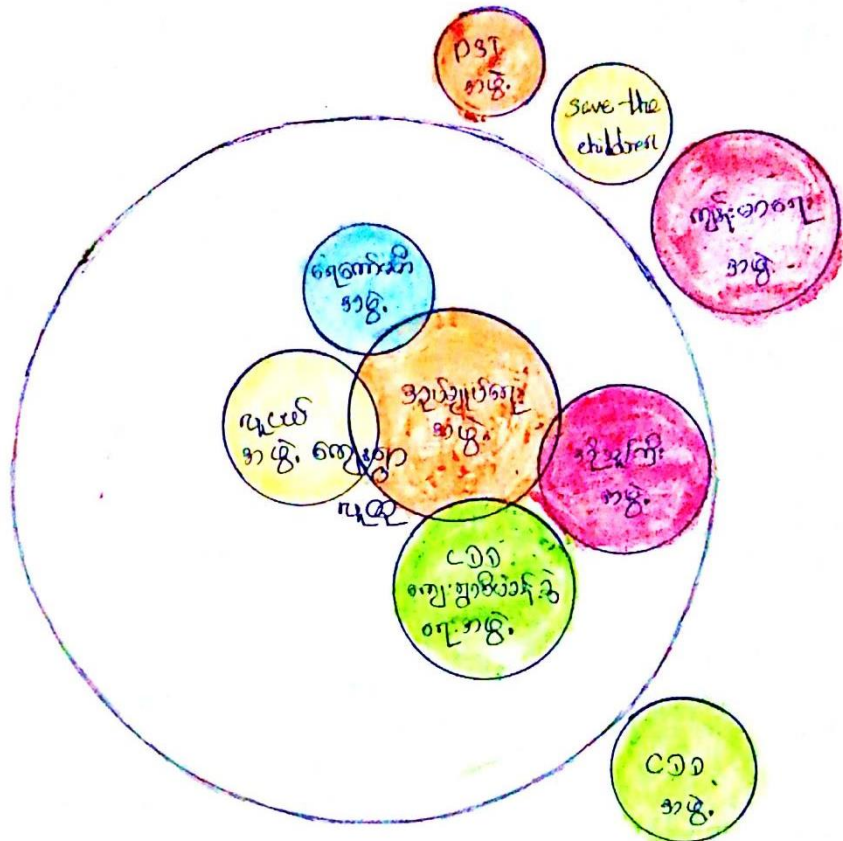 DST
အဖွဲ့.
save the
children
ကျန်းမာရေး
အဖွဲ့
အဖွဲ့.
အုပ်ချုပ်ရေး
အဖွဲ့.
လူငယ်
အဖွဲ့.
ကျေးရွာ
လူထု
အဖွဲ့.
CDD
ကျေးရွာစီမံခန့်ခွဲ
ရေးအဖွဲ့.
CDD
အဖွဲ့.